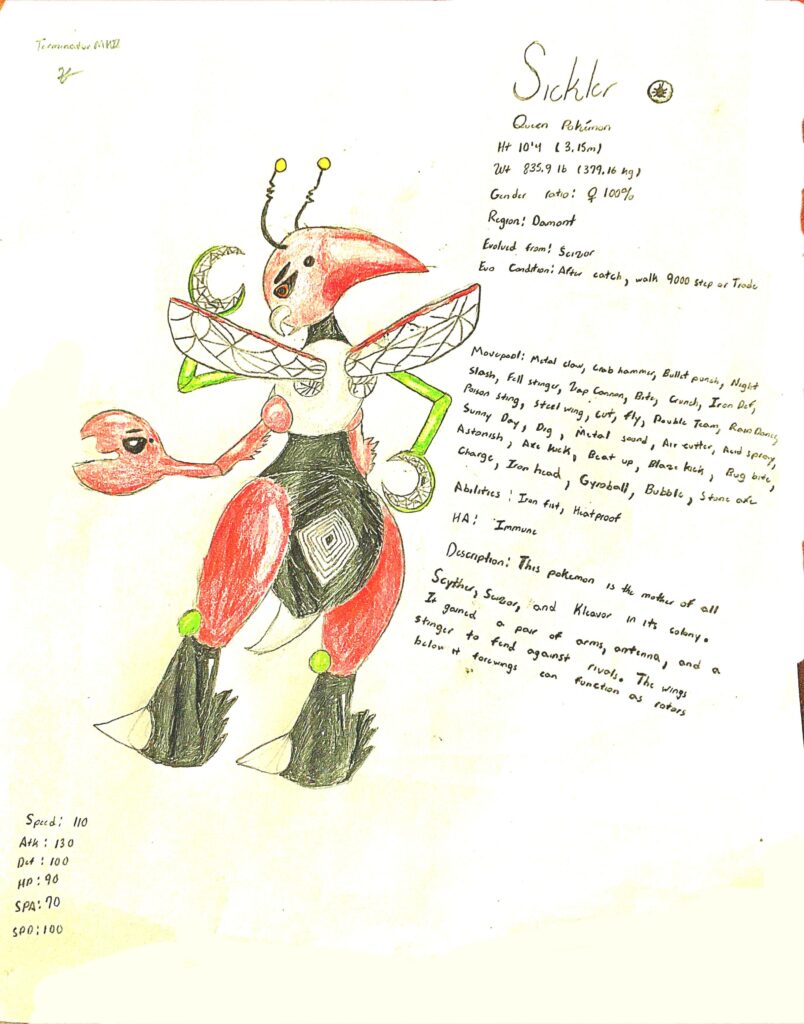 Terminator MKII
Sickler
Queen Pokémon
Ht 10'4 (3.15m)
Wt 835.9 lb (379.16 kg)
Gender ratio: ♀ 100%
Region: Damont
Evolved from: Scizor
Evo Condition: After catch, walk 9000 step or Trade
Movepool: Metal claw, Crab hammer, Bullet punch, Night
Slash, Fell stinger, Zap Cannon, Bite, Crunch, Iron Def,
Poison sting, Steel wing, Cut, fly, Double Team, Rain Dance,
Sunny Day, Dig, Metal sound, Air cutter, Acid spray,
Astonish, Axe kick, Beat up, Blaze kick, Bug bite,
Charge, Iron head, Gyroball, Bubble, Stone axe
Abilities: Iron fist, Heatproof
HA: Immune
Description: This pokemon is the mother of all
Scyther, Scizor, and Kleavor in its colony.
It gained a pair of arms, antenna, and a
stinger to fend against rivals. The wings
below it forewings can function as rotors
Speed: 110
Atk: 130
Def: 100
HP: 90
SPA: 70
SPD: 100